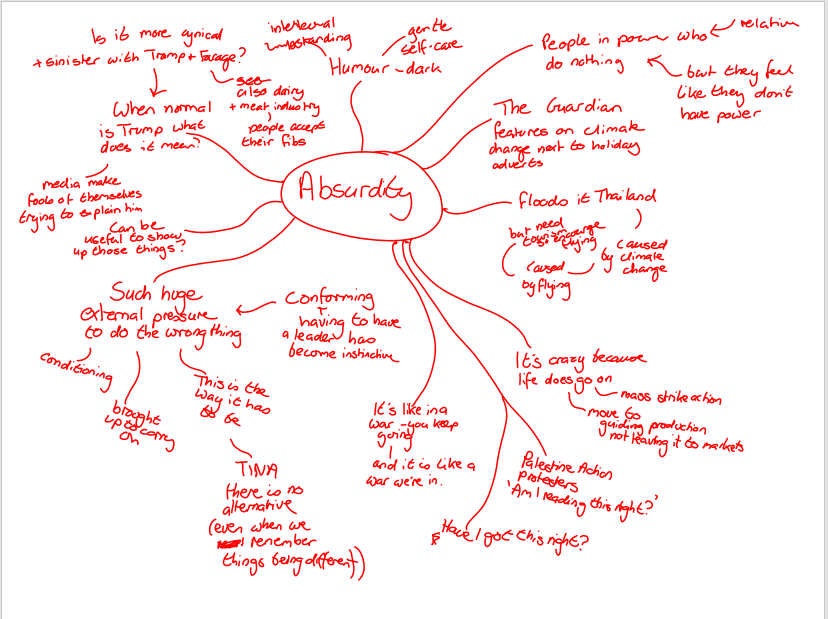 Absurdity
intellectual
understanding
gentle
self-care
Humour - dark
People in power who
do nothing
relative
but they feel
like they don't
have power
The Guardian
features on climate
change next to holiday
adverts
floods it Thailand
but need
tourism
so encourage
flying
caused
by climate
change
caused
by flying
It's crazy because
life does go on
mass strike action
move to
guiding production
not leaving it to markets
Palestine Action
protesters
'Am I reading this right?'
Have I got this right?
It's like in a
war - you keep
going
and it is like a
war we're in.
Such huge
external pressure
to do the wrong thing
Conforming
having to have
a leader has
become instinctive
conditioning
brought
up to carry
on
This is the
way it has
to be
TINA
there is no
alternative
(even when we
remember
things being different)
Can be
useful to show
up those things?
When normal
is Trump what
does it mean?
media make
fools of themselves
trying to explain him
Is it more cynical
+ sinister with Trump + Farage?
see
also dairy
+ meat industry
people accept
their fibs